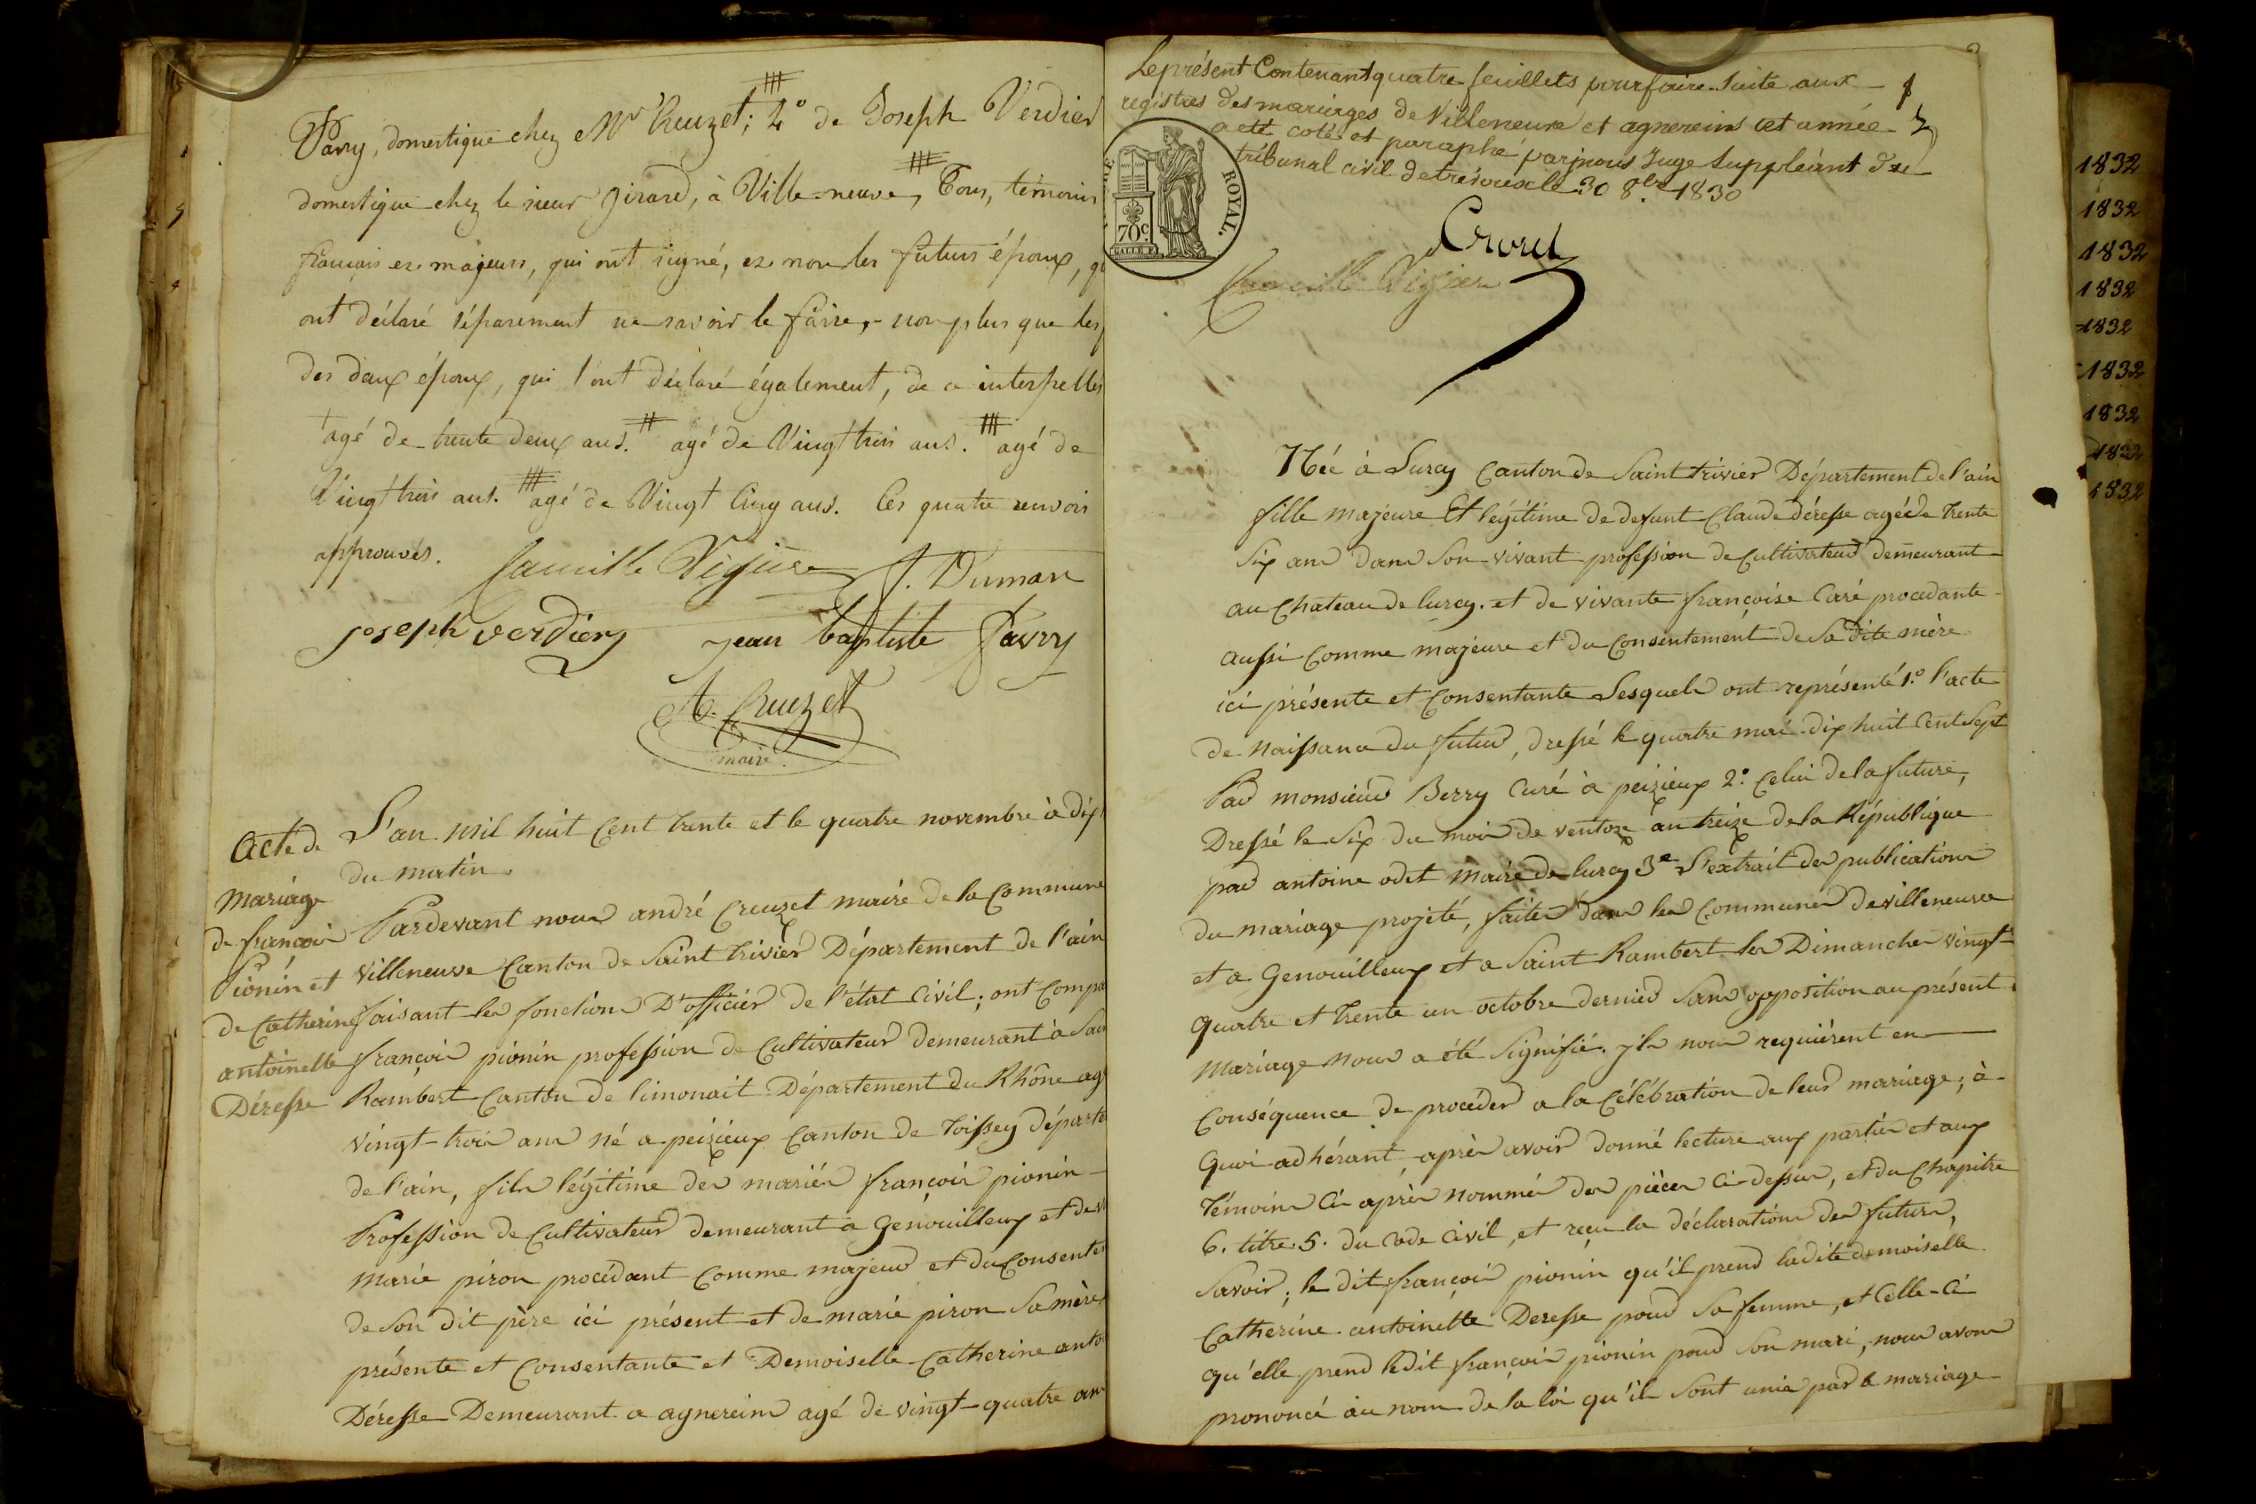 Favry, domestique chez Mr Creuzet; 4° de Joseph Verdier
domestique chez le sieur Girard, à Ville-neuve, Tous, témoins
français et majeurs, qui ont signé, et non les futurs époux, qu
ont déclaré séparement ne savoir le faire, non plus que les
des deux époux, qui l'ont déclaré également, de ce interpellés
agé de trente deux ans. agé de Vingt trois ans. agé de
Vingt trois ans. agé de Vingt Cinq ans. Ces quatre renvois
approuvés.
Camille Vigier J. Duman
joseph verdier jean baptiste favry
A. Creuzet
maire
Acte de
Mariage
de françois
Pionin et
de Catherine
antoinette
Déresse
L'an mil huit Cent trente et le quatre novembre à dix
du matin.
Pardevant nous andré Creuzet maire de la Commune
Villeneuve Canton de Saint trivier Département de l'ain
faisant les fonctions D'officier de l'état Civil; ont Compa
françois pionin profession de Cultivateur demeurant à Sai
Rambert Canton de limonait Département du Rhône ag
vingt-trois ans né a peizieux Canton de toissey départe
de l'ain, fils légitime des mariés françois pionin
Profession de Cultivateur demeurant a Genouilleux et de
marie piron procédant Comme majeur et du Consente
de Son dit père ici présent et de marie piron Sa mère
présente et Consentante et Demoiselle Catherine anto
Déresse Demeurant a agnereins agé de vingt-quatre ans
Le présent Contenant quatre feuillets pour faire Suite aux
registres des mariages de Villeneuve et agnereins cet année
a été coté et paraphé par nous Juge Suppléant du
tribunal civil de trévoux le 30 8bre 1830
ROYAL.
70c
Camille Vigier
Née à Lurcy Canton de Saint trivier Département de l'ain
fille majeure Et légitime de defunt Claude déresse agée de trente
Six ans dans Son vivant profession de Cultivateur demeurant
au Chateau de lurcy. et de vivante françoise Caré procedante
aussi Comme majeure et du Consentement de Sa dite mère
ici présente et Consentante Lesquels ont représenté 1.° l'acte
de naissance du futur, dressé le quatre mai dix huit Cent Sept
Par monsieur Berry Curé à peizieux 2.° Celui de la future,
Dressé le Six du mois de ventoze an treize de la République
par antoine odet Maire de lurcy 3e L'extrait des publications
du mariage projeté, faites dans les Communes de villeneuve
et a Genouilleux et a Saint Rambert les Dimanches vingt-
quatre et trente un octobre dernier Sans opposition au présent
Mariage nous a été Signifié. ils nous requièrent en
Conséquence de procéder a la Célébration de leur mariage; à
Quoi adhérant après avoir donné lecture aux parties et aux
Témoins Ci après nommés des pièces Ci-dessus, et du Chapitre
6. titre 5. du Code Civil, et reçu la déclaration des futurs,
Savoir; le dit françois pionin qu'il prend ladite demoiselle
Catherine antoinette Deresse pour Sa femme, et Celle-Ci
qu'elle prend ledit françois pionin pour Son mari, nous avons
prononcé au nom de la loi qu'ils Sont unis par le mariage
1832
1832
1832
1832
1832
1832
1832
1832
1832